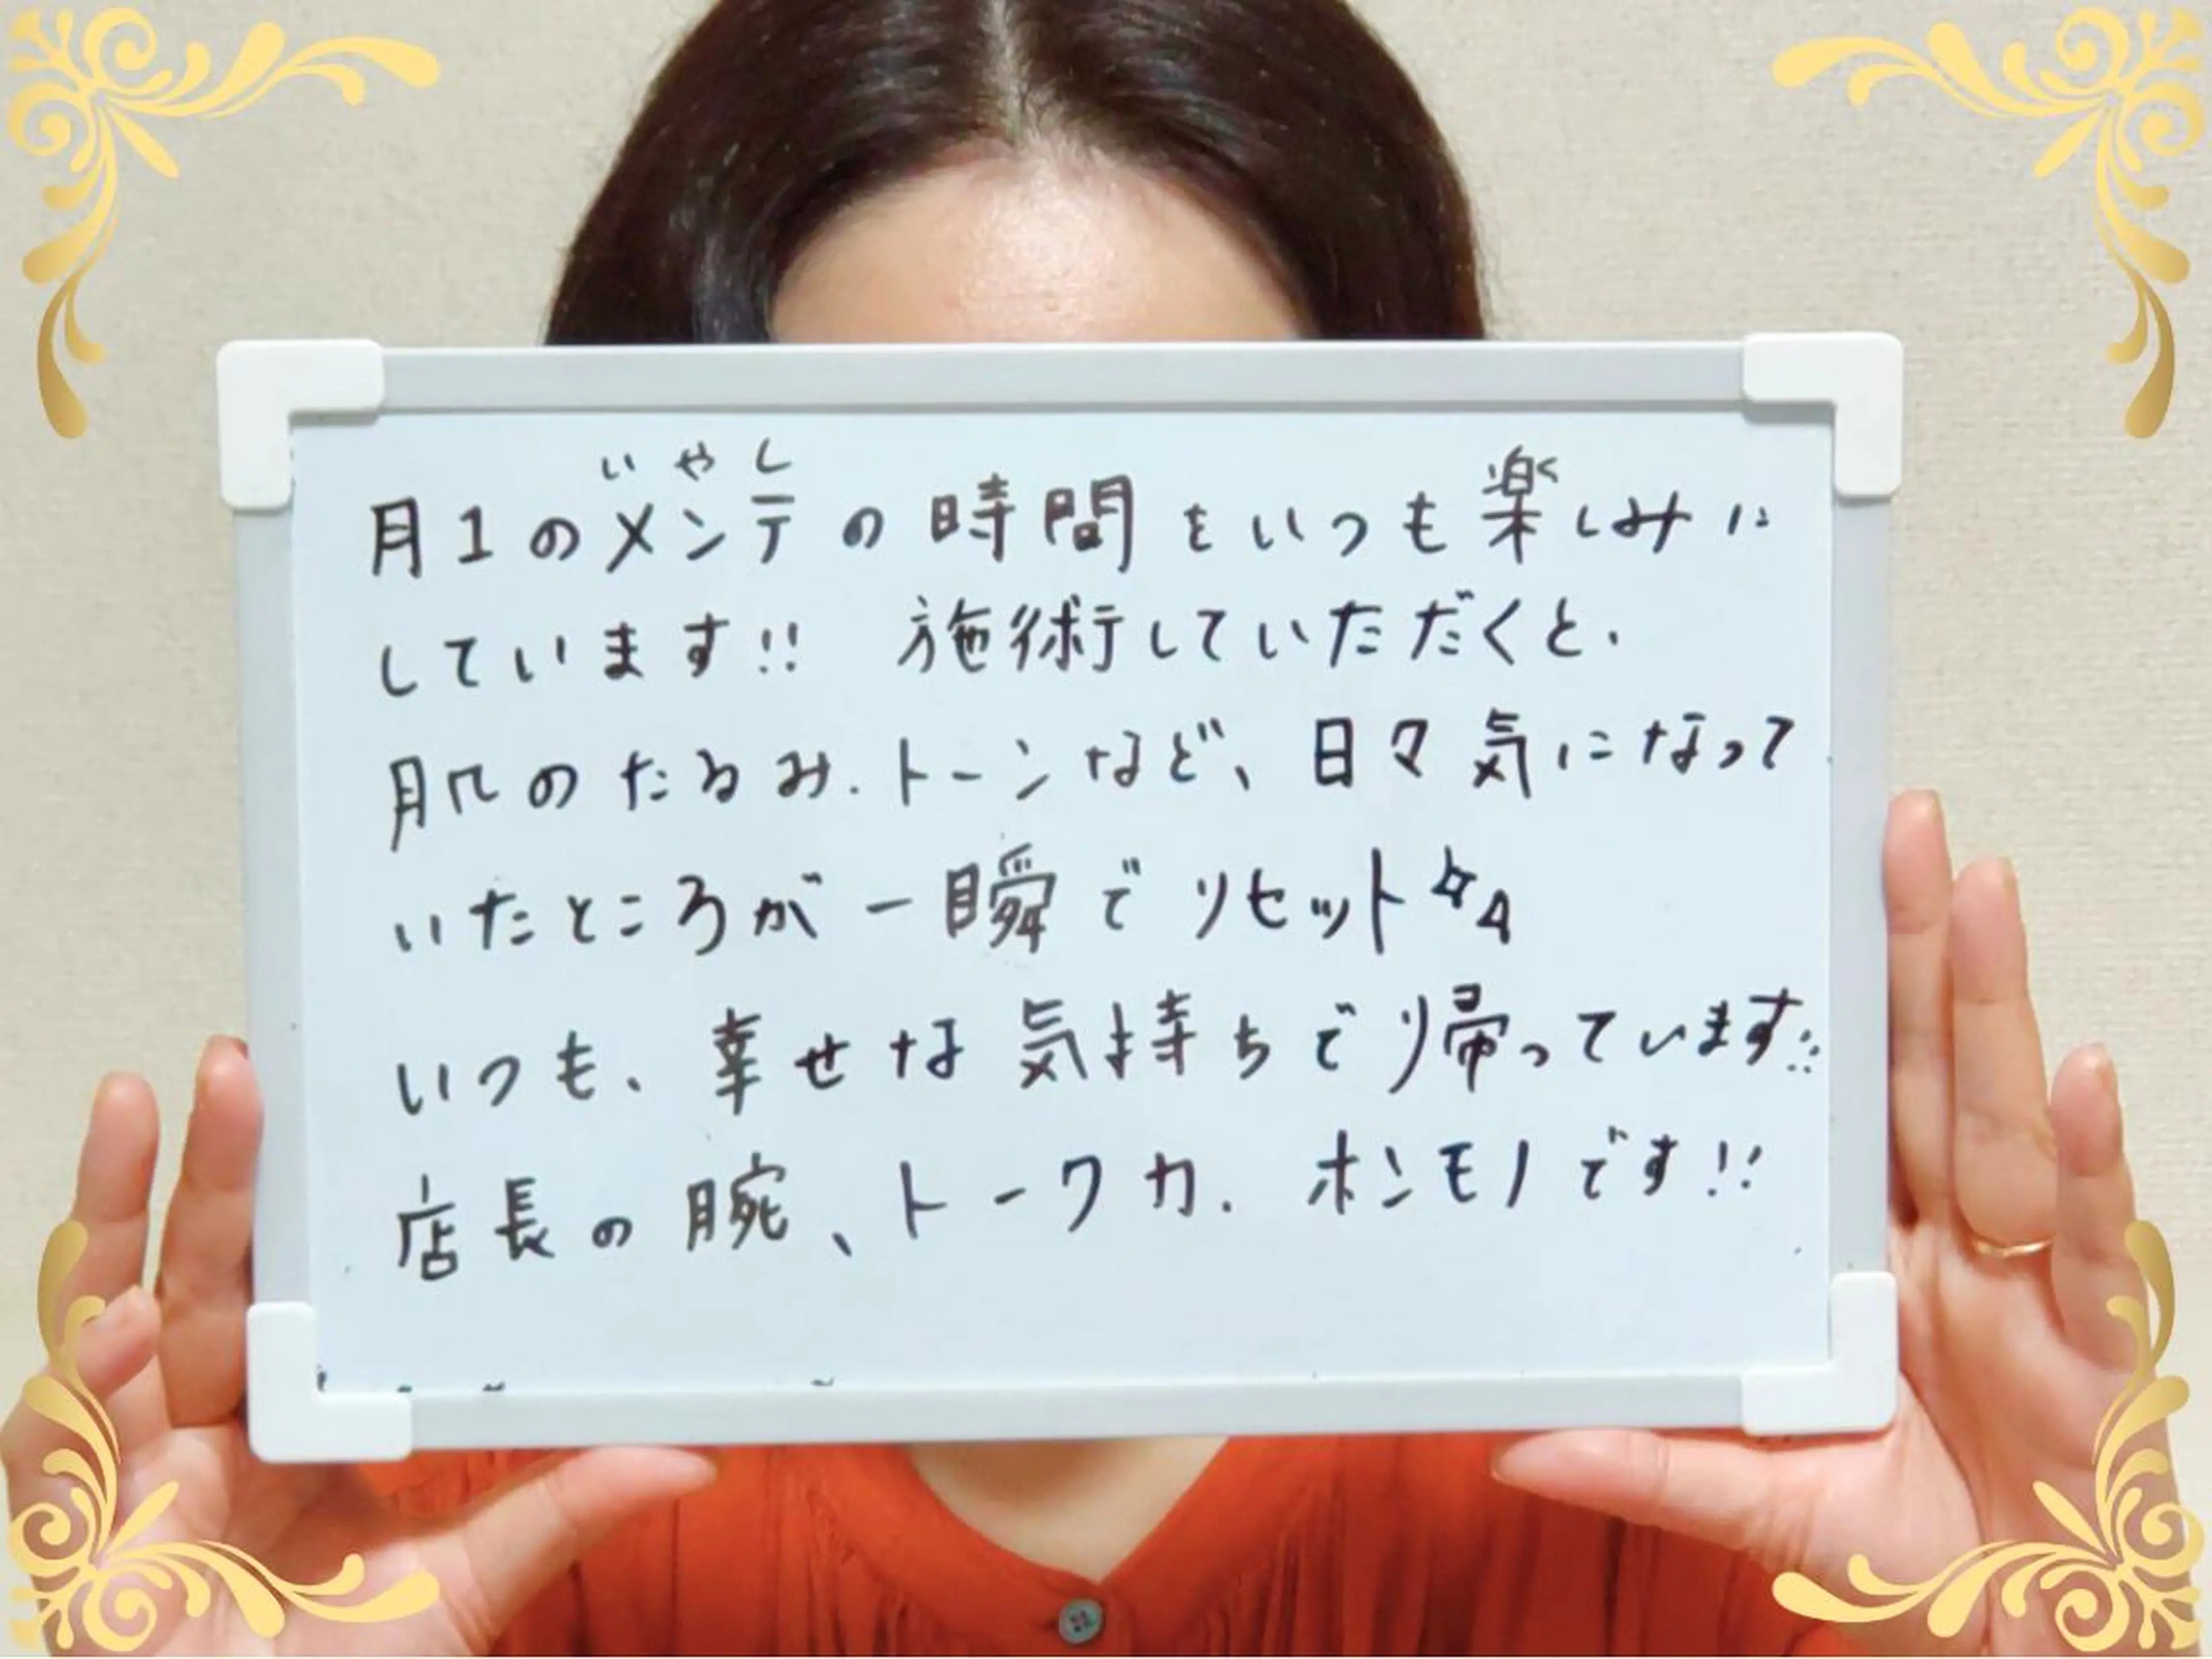 いやし
月1のメンテの時間をいつも楽しみに
しています!! 施術していただくと、
肌のたるみ、トーンなど、日々気になって
いたところが一瞬でリセット
いつも、幸せな気持ちで帰っています!!
店長の腕、トーク力、ホンモノです!!